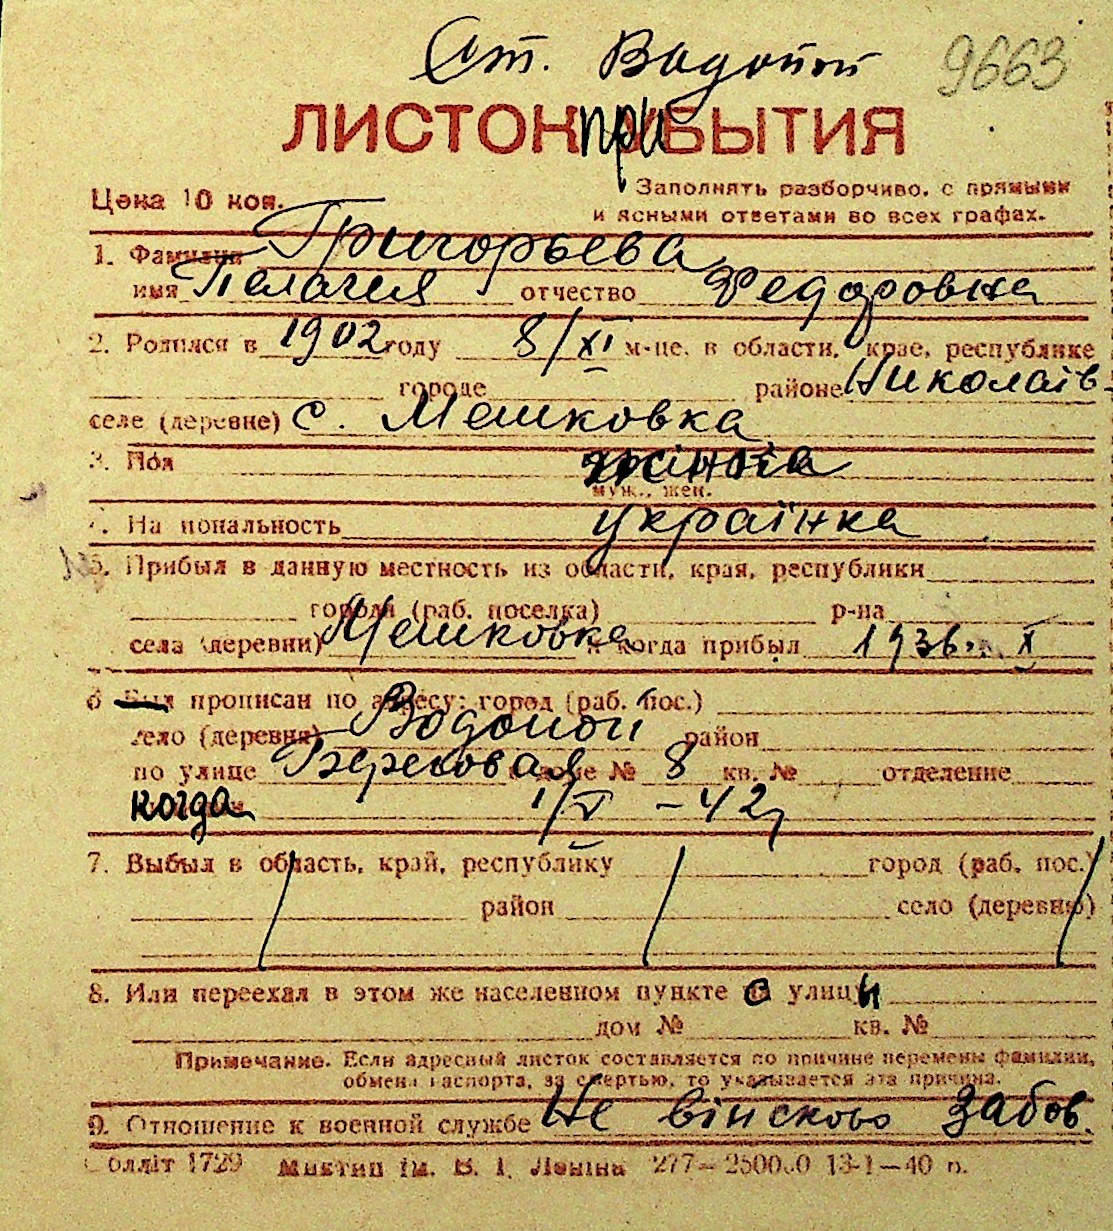 Ст. Водопой 9663
ЛИСТОК при БЫТИЯ
Цена 10 коп. Заполнять разборчиво, с прямыми
и ясными ответами во всех графах.
1. Фамилия Григорьева
имя Пелагея отчество Федоровна
2. Родился в 1902 году 8/XI м-це, в области, крае, республике
городе районе Николаїв.
селе (деревне) с. Мешковка
3. Пол жіноча
муж., жен.
4. Национальность українка
5. Прибыл в данную местность из области, края, республики
города (раб. поселка) р-на
села (деревни) Мешковка и когда прибыл 1936 г. X
6 Был прописан по адресу: город (раб. пос.)
село (деревня) Водопой район
по улице Береговая доме № 8 кв. № отделение
когда 1/V - 42
7. Выбыл в область, край, республику город (раб. пос.)
район село (деревню)
8. Или переехал в этом же населенном пункте с улицы
дом № кв. №
Примечание. Если адресный листок составляется по причине перемены фамилии,
обмена паспорта, за смертью, то указывается эта причина.
9. Отношение к военной службе Не військово забов.
Облліт 1729 Миктип ім. В. І. Леніна 277—250000 13-1—40 р.